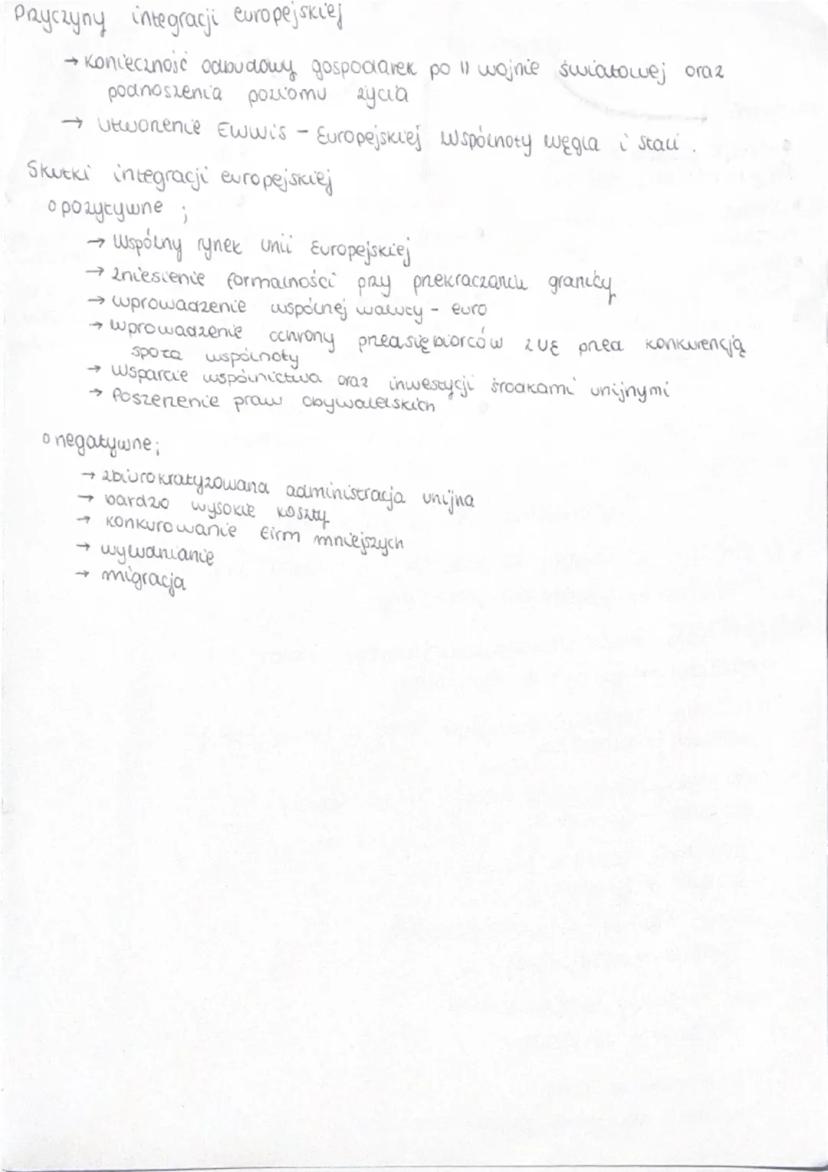 Przyczyny integracji europejskiej
→ Konieczność odbudowy gospodarek po II wojnie światowej oraz
podnoszenia poziomu życia
→ Utworzenie EWWiS - Europejskiej Wspólnoty węgla i stali.
Skutki integracji europejskiej
o pozytywne ;
→ Wspólny rynek unii Europejskiej
→ zniesienie formalności przy przekraczaniu granicy
→ wprowadzenie wspólnej waluty - euro
→ wprowadzenie ochrony przedsiębiorców z UE przed konkurencją
spoza wspólnoty
→ Wsparcie wspólnictwa oraz inwestycji środkami unijnymi
→ Poszerzenie praw obywatelskich
o negatywne;
→ zbiurokratyzowana administracja unijna
→ bardzo wysokie koszty
→ konkurowanie firm mniejszych
→
→ migracja